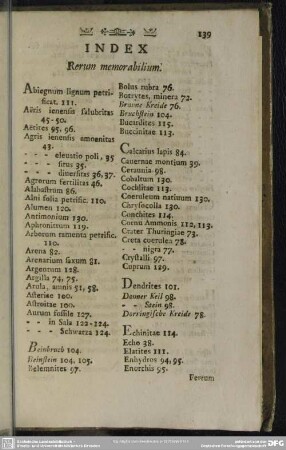 139
INDEX
Rerum memorabilium.
Abiegnum lignum petri-
ficat. 111.
Aëris ienensis salubritas
45-50.
Aetites 95, 96.
Agris ienensis amoenitas
43.
- - - eleuatio poli, 35
- - - situs 35.
- - - diuersitas 36, 37.
Agrorum fertilitas 46.
Alabastrum 86.
Alni folia petrific. 110.
Alumen 120.
Antimonium 130.
Aphronitrum 119.
Arborum ramenta petrific.
110.
Arena 82.
Arenarium saxum 81.
Argentum 128.
Argilla 74, 75.
Arola, amnis 51, 58.
Asteriae 100.
Astroitae 100.
Aurum fussile 127.
- - in Sala 122-124.
- - - Schwarza 124.
Beinbruch 104.
Beinstein 104, 105.
Belemnites 97.
Bolus rubra 76.
Botrytes, minera 72.
Braune Kreide 76.
Bruchstein 104.
Bucardites 115.
Buccinitae 113.
Calcarius lapis 84.
Cauernae montium 39.
Ceraunia 98.
Cobaltum 130.
Cochlitae 113.
Coeruleum natiuum 130.
Chrysocolla 130.
Conchites 114.
Cornu Ammonis 112, 113.
Crater Thuringiae 73.
Creta coerulea 78.
- - nigra 77.
Crystalli 97.
Cuprum 129.
Dendrites 101.
Donner Keil 98.
- - Stein 98.
Dorringische Kreide 78.
Echinitae 114.
Echo 38.
Elatites 111.
Enhydros 94, 95.
Enorchis 95.
Ferrum